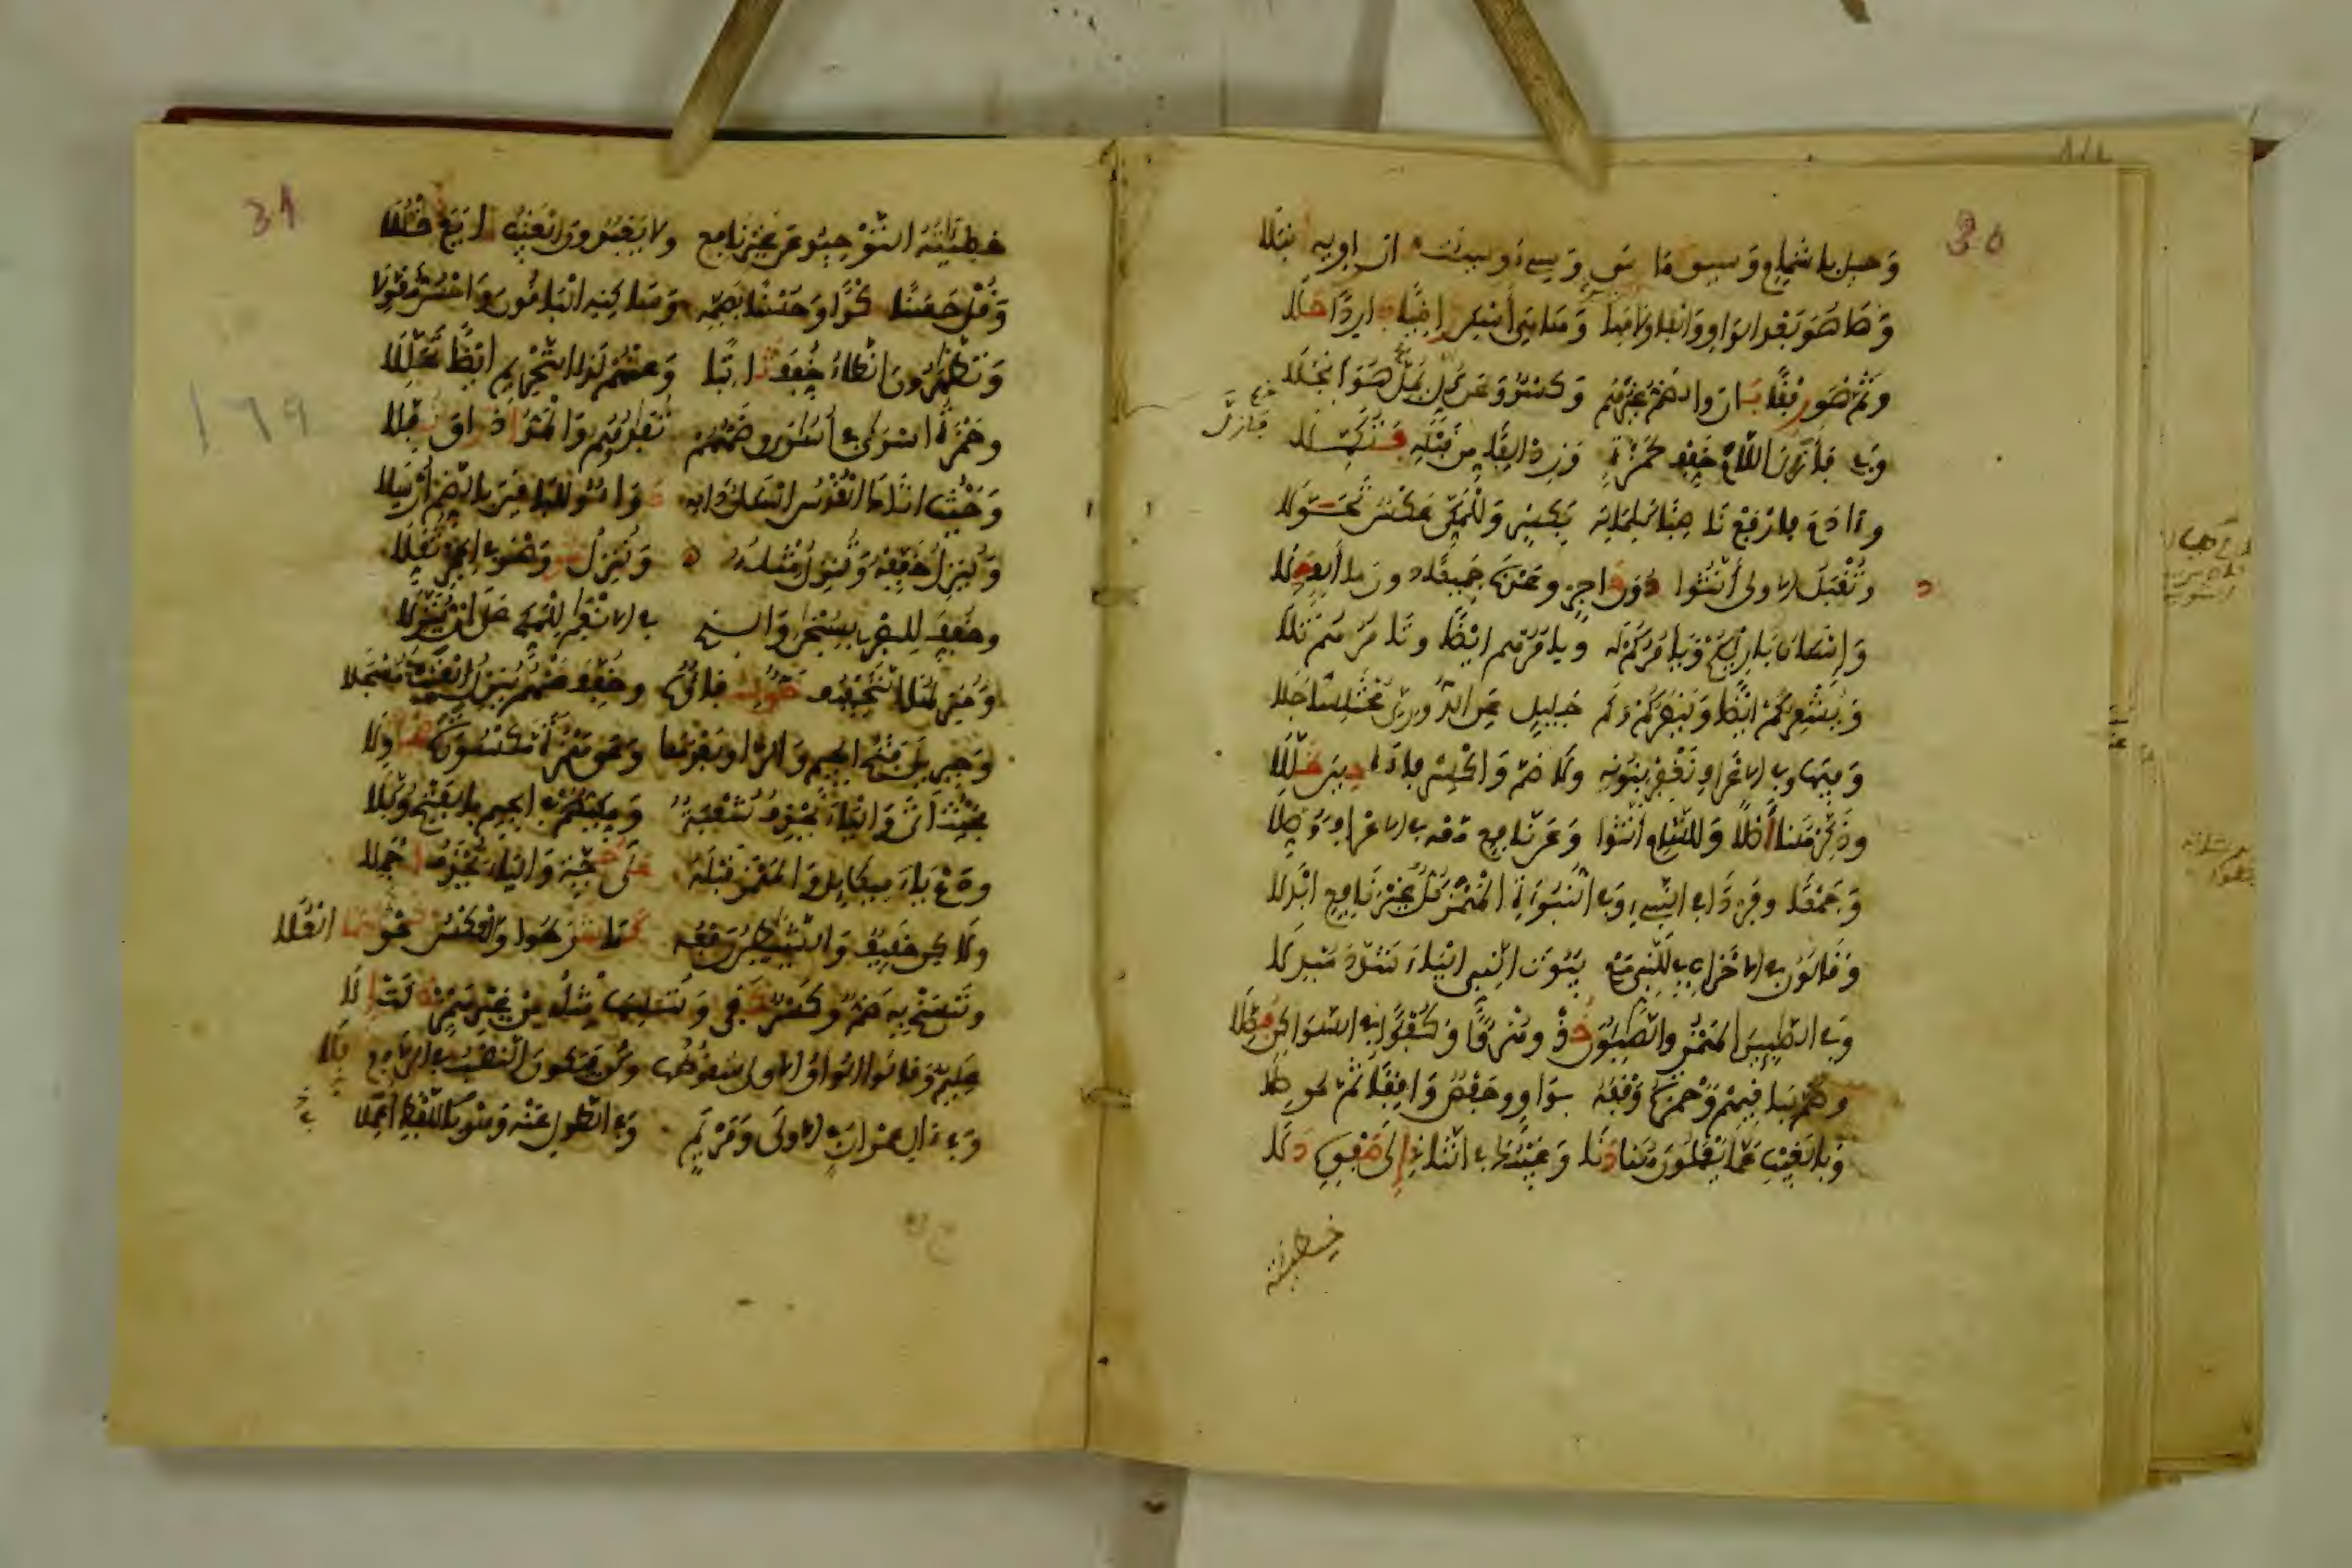 30
وَحيل باشمام وسيق كما رسا وسيء وسيئت كان راويه انبلا
وها هو بعد الواو والفا ولامها وها هي أسكن راضيا باردا حلا
وثم هو رفقا بان والضم غيرهم وكسر وعن كل يمل هو انجلا
وفي فأزل اللام خفف لحمزة وزد الفا من قبله فتكملا
وءادم فارفع ناصبا كلماته بكسر وللمكي عكس تحولا
وتقبل الاولى أنثوا دون حاجز وعدنا جميعا دون ما ألف حلا
وإسكان بارئكم ويامركم له ويامرهم ايضا وتامرهم تلا
وينصركم ايضا ويشعركم وكم جليل عن الدوري مختلسا جلا
وفيها وفي الاعراف نغفر بنونه ولا ضم واكسر فاءه حين ظللا
وذكر هنا أصلا وللشام أنثوا وعن نافع معه في الاعراف وصلا
وجمعا وفردا في النبيء وفي النبوءة الهمز كل غير نافع ابدلا
وقالون في الاحزاب في للنبي مع بيوت النبي الياء شدد مبدلا
وفي الصابين الهمز والصابون خذ وهزؤا وكفؤا في السواكن فصلا
وضم لباقيهم وحمزة وقفه بواو وحفص واقفا ثم موصلا
وبالغيب عما يعملون هنا دنا وغيبك في الثاني إلى صفوه دلا
خطيئته
31
خطيئته التوحيد عن غير نافع ولا يعبدون الغيب شايع دخللا
وقل حسنا شكرا وحسنا بضمه وساكنه الباقون واحسن مقولا
وتظاهرون الظاء خفف ثابتا وعنهم لدى التحريم ايضا تحللا
وحمزة اسرى في أسارى وضمهم تفادوهم والمد اذ راق نفلا
وحيث اتاك القدس اسكان داله دواء وللباقين بالضم أرسلا
وينزل خففه وتنزل مثله وننزل حق وهو في الحجر ثقلا
وخفف للبصري بسبحان والذي في الانعام للمكي على ان ينزلا
ومنزلها التخفيف حق شفاؤه وخفف عنهم ينزل الغيث مسجلا
وجبريل فتح الجيم والرا وبعدها وعى همزة مكسورة صحبة ولا
بحيث أتى والياء يحذف شعبة ومكيهم في الجيم بالفتح وكلا
ودع ياء ميكائيل والهمز قبله على حجة والياء يحذف اجملا
ولاكن خفيف والشياطين رفعه كما شرطوا والعكس نحو سما العلا
وننسخ به ضم وكسر كفى وننسها مثله من غير همز ذكت إلى
عليم وقالوا الواو الاولى سقوطها وكن فيكون النصب في الرفع كفلا
وفي آل عمران في الاولى ومريم وفي الطول عنه وهو باللفظ اعملا
169